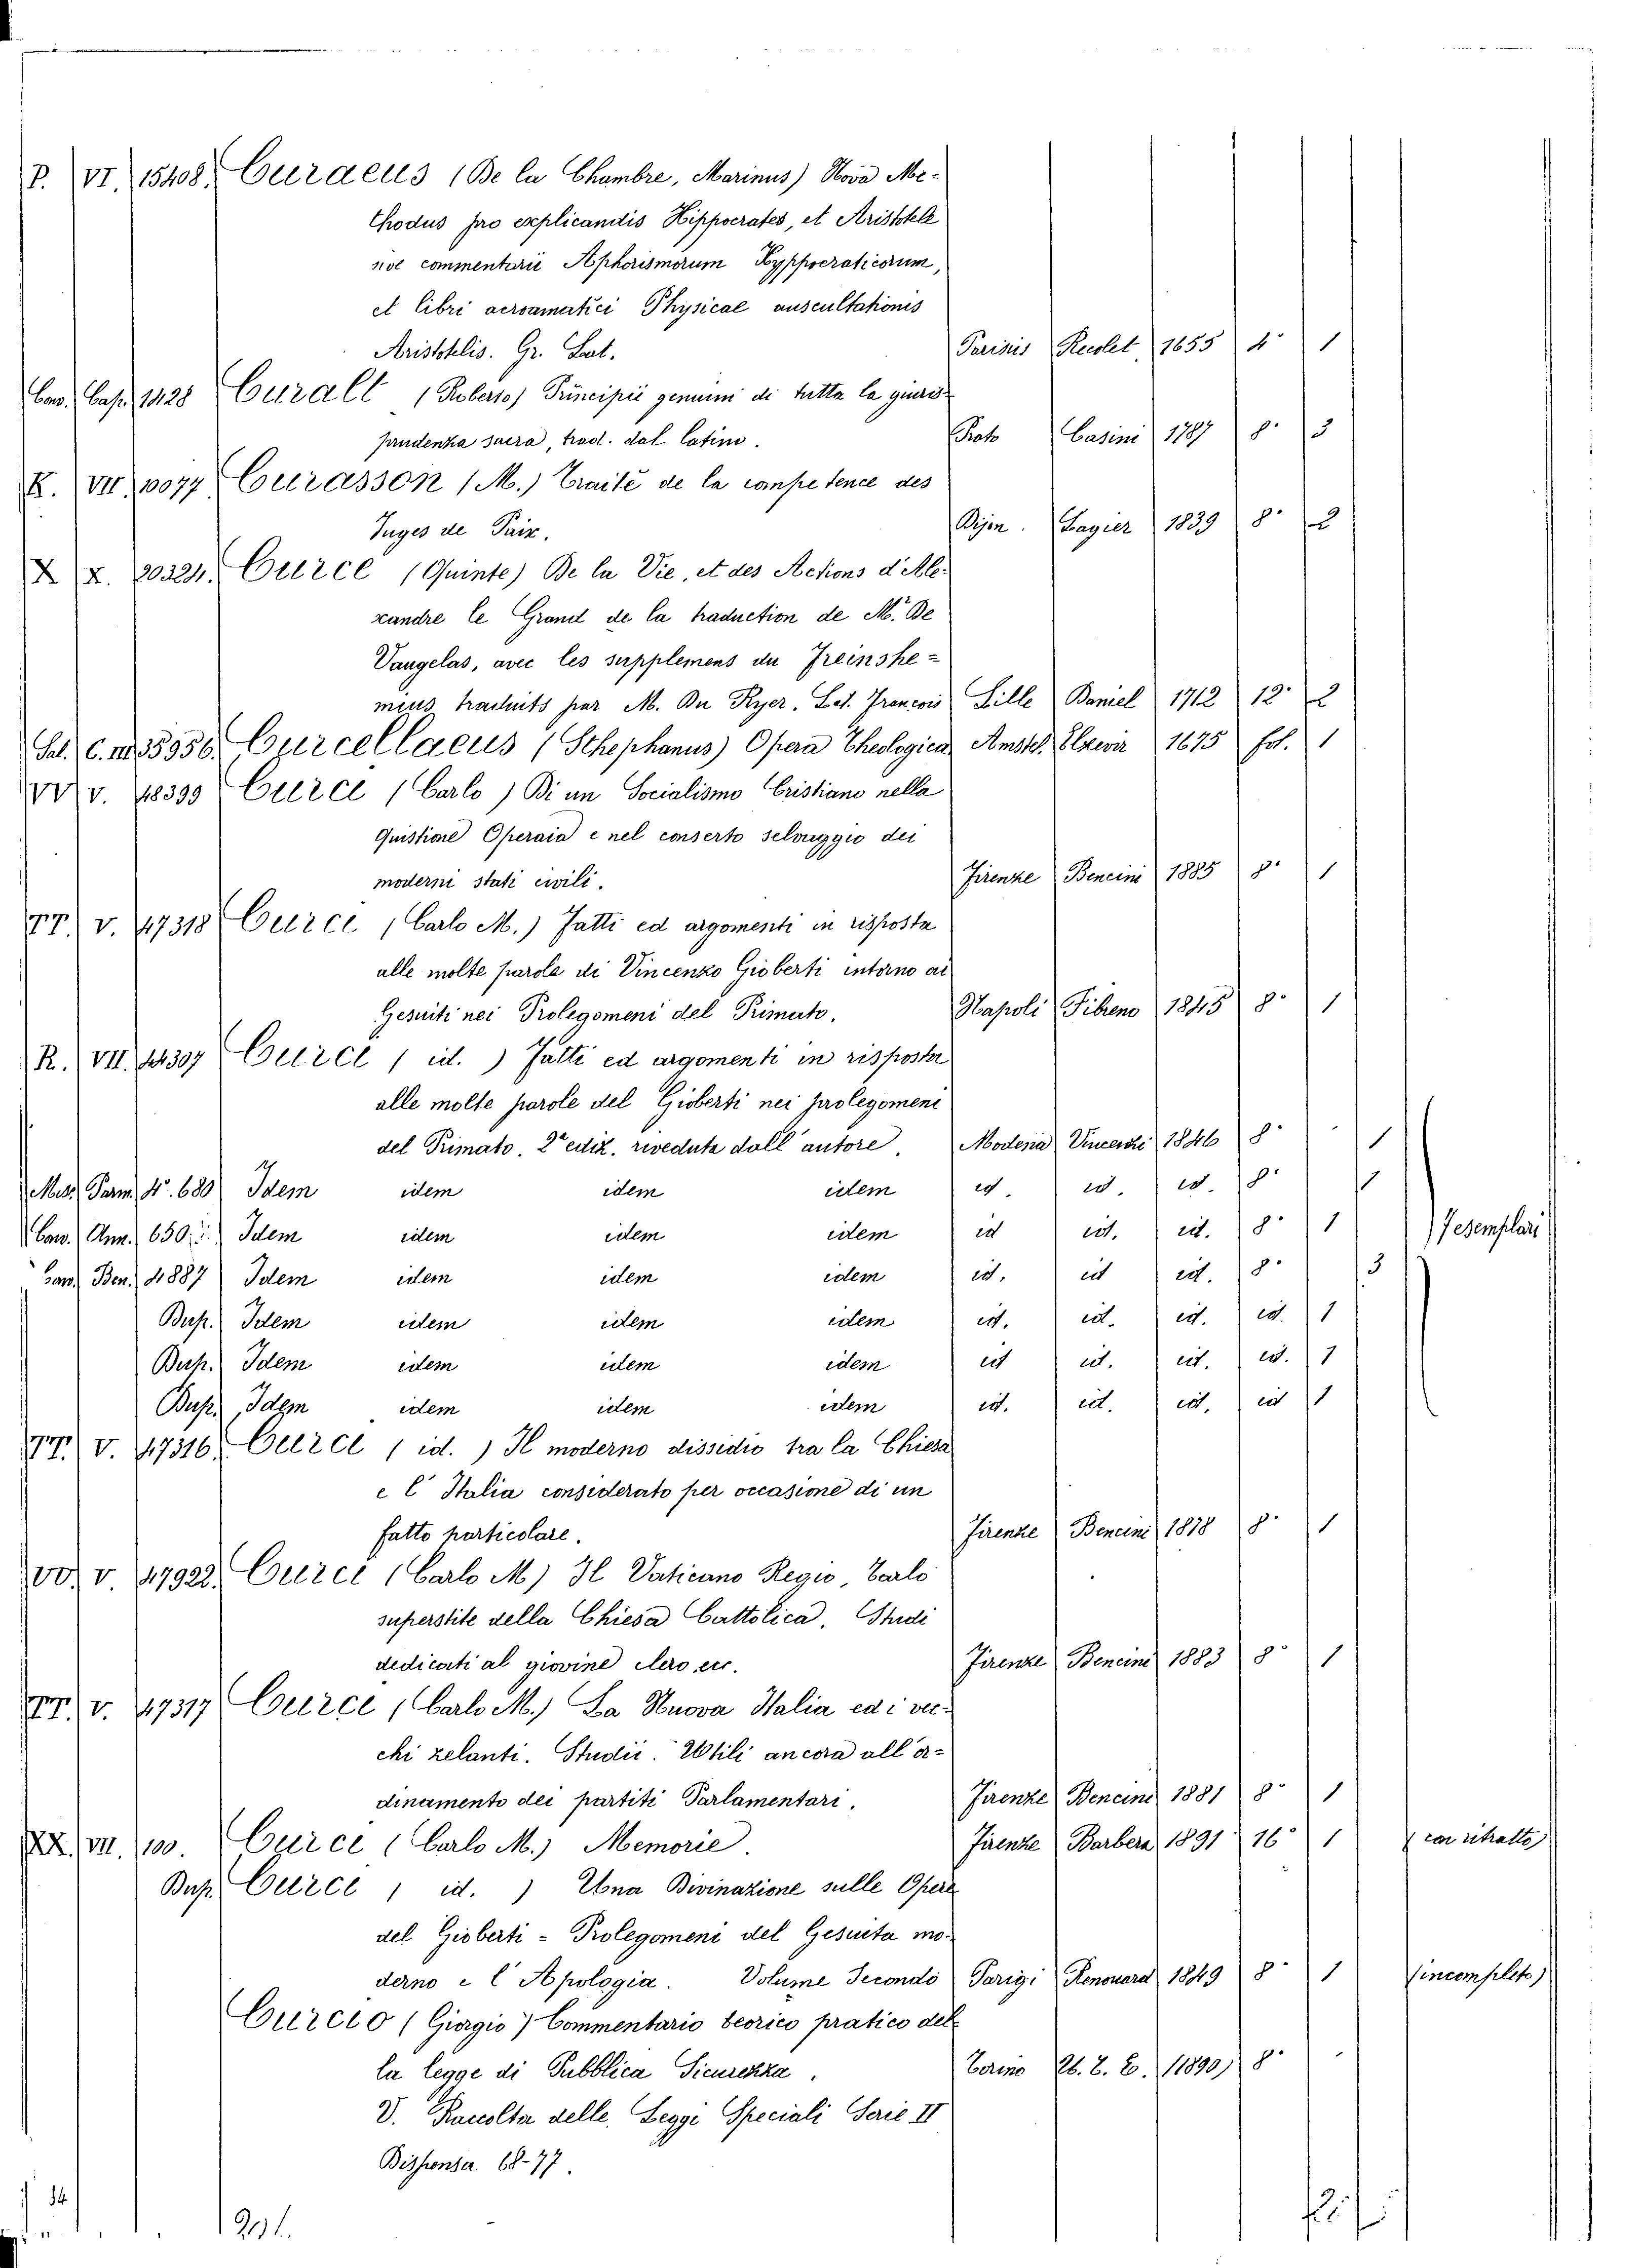 P. VI. 15408. Curaeus (De la Chambre, Marinus) Nova Me-
thodus pro explicandis Hippocrates, et Aristotele
sive commentarii Aphorismorum Hyppocraticorum,
et libri acroamatici Physicae auscultationis
Aristotelis. Gr. Lat. Parisiis Recolet 1655 4° 1
Cav. Cap. 1428 Curalt (Roberto) Principii genuini di tutta la giuris-
prudenza sacra, trad. dal latino. Prato Casini 1787 8° 3
K. VII. 10077 Curasson (M.) Traité de la competence des
Juges de Paix. Dijon. Lagier 1839 8° 2
X X. 20324. Curce (Quinte) De la Vie, et des Actions d'Ale-
xandre le Grand de la traduction de M. De
Vaugelas, avec les supplemens du Freinshe=
mius traduits par M. Du Ryer. Lat. Francois Lille Daniel 1712 12° 2
Sal. C. III 35956. Curcellaeus (Sthephanus) Opera Theologica Amstel. Elzevir 1675 fol. 1
VV V. 48399 Curci (Carlo) Di un Socialismo Cristiano nella
Quistione Operaia e nel conserto selvaggio dei
moderni stati civili. Firenze Bencini 1885 8° 1
TT. V. 47318 Curci (Carlo M.) Fatti ed argomenti in risposta
alle molte parole di Vincenzo Gioberti intorno ai
Gesuiti nei Prolegomeni del Primato. Napoli Fibreno 1845 8° 1
R. VII. 44307 Curci (id.) Fatti ed argomenti in risposta
alle molte parole del Gioberti nei prolegomeni
del Primato. 2ª ediz. riveduta dall'autore. Modena Vincenzi 1846 8° 1
Misc. Parm. 4°. 680 Idem idem idem idem id. id. id. 8° 1
Cav. Ann. 650 Idem idem idem idem id id. id. 8° 1 7 esemplari
Cav. Ben. 4887 Idem idem idem idem id. id id. 8° 3
Dup. Idem idem idem idem id. id. id. id. 1
Dup. Idem idem idem idem id id. id. id. 1
Dup. Idem idem idem idem id. id. id. id 1
TT. V. 47316. Curci (id.) Il moderno dissidio tra la Chiesa
e l'Italia considerato per occasione di un
fatto particolare. Firenze Bencini 1878 8° 1
VV. V. 47922. Curci (Carlo M) Il Vaticano Regio, Tarlo
superstite della Chiesa Cattolica. Studi
dedicati al giovine clero ecc. Firenze Bencini 1883 8° 1
TT. V. 47317 Curci (Carlo M.) La Nuova Italia ed i vec-
chi zelanti. Studii. Utili ancora all'or-
dinamento dei partiti Parlamentari. Firenze Bencini 1881 8° 1
XX. VII. 100. Curci (Carlo M.) Memorie. Firenze Barbera 1891 16° 1 (con ritratto)
Dup. Curci (id.) Una Divinazione sulle Opere
del Gioberti = Prolegomeni del Gesuita mo-
derno e l'Apologia. Volume Secondo Parigi Renouard 1849 8° 1 (incompleto)
Curcio (Giorgio) Commentario teorico pratico del-
la legge di Pubblica Sicurezza. Torino U. T. E. (1890) 8°
V. Raccolta delle Leggi Speciali Serie II
Dispensa 68-77.